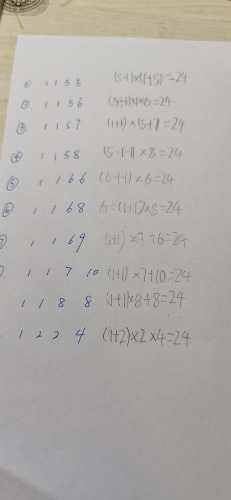 ① 1 1 5 5 (5-1)×(1+5)=24
② 1 1 5 6 (5×1-1)×6=24
③ 1 1 5 7 (1+1)×(5+7)=24
④ 1 1 5 8 (5-1-1)×8=24
⑤ 1 1 6 6 (6-1-1)×6=24
⑥ 1 1 6 8 6÷(1+1)×8=24
1 1 6 9 (1+1)×9+6=24
1 1 7 10 (1+1)×7+10=24
1 1 8 8 (1+1)×8+8=24
1 2 2 4 (1+2)×2×4=24